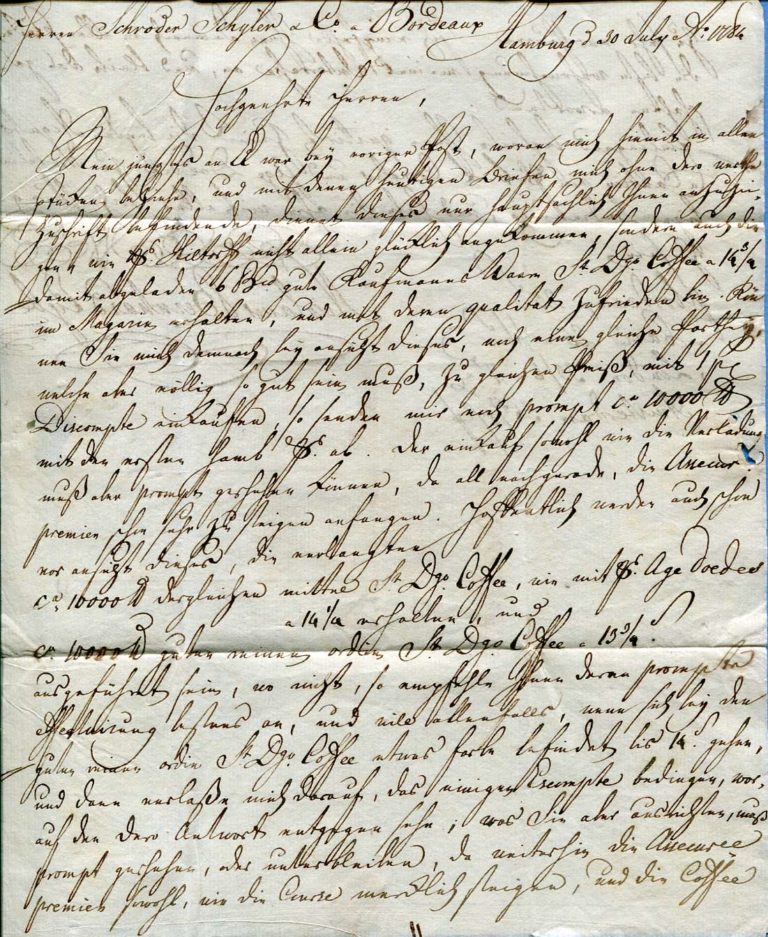 Herren Schröder Schÿler & Co. a Bordeaux
Hamburg d 30 July Ao. 1784
Hochgeehrte Herren,
Mein jüngstes an E war beÿ voriger Post, woran mich hiemit in allen
Stücken beziehe, und mit denen heutigen Briefen mich ohne dero werthe
Zuschrift befindende, dienet dieses nur hauptsächlich Ihnen anzuzei-
gen wie nicht allein glücklich angekommen, sondern auch die
damit abgeladen 6 gute Kaufmanns Waare St. Dgo. Coffee a 14 3/4
im Magazin erhalten, und mit deren qualitat zufrieden bin. Kön-
nen Sie mich demnach beÿ ansicht dieses, noch eine gleiche Partheÿ,
welche aber völlig so gut sein muß, zu gleichen Preiß, mit 1 pC
Discompte einkaufen, so senden mir noch prompt ca 10000 lb
mit den ersten Hamb. ab. Der einkauf sowohl wie die Verladung
muß aber prompt geschehen können, da all nachgerade, die Assecur:
premien schon sehr zu steigen anfangen. Hoffentlich werden auch schon
vor ansicht dieses, die verlangten
ca. 10000 lb dergleichen mittel St. Dgo. Coffee, wie mit Age Doedes
a 14 1/4 erhalten, und
ca. 10000 lb guten reinen ordin St. Dgo Coffee a 13 3/4 s.
ausgeführet sein, wo nicht, so empfehle Ihnen deren prompte
bestens an, und will allenfalls, wenn sich beÿ den
guten reinen ordin St. Dgo Coffee etwas farbe befindet bis 14 s. gehen,
und dann verlaße mich darauf, das einigen Escompte bedingen, wor-
auf den dero Antwort entgegen sehe; was Sie aber ausrichten, muß
prompt geschehen, oder unterbleiben, da weiterhin die Assecuree
premien sowohl, wie die Course mercklich steigen, und die Coffee